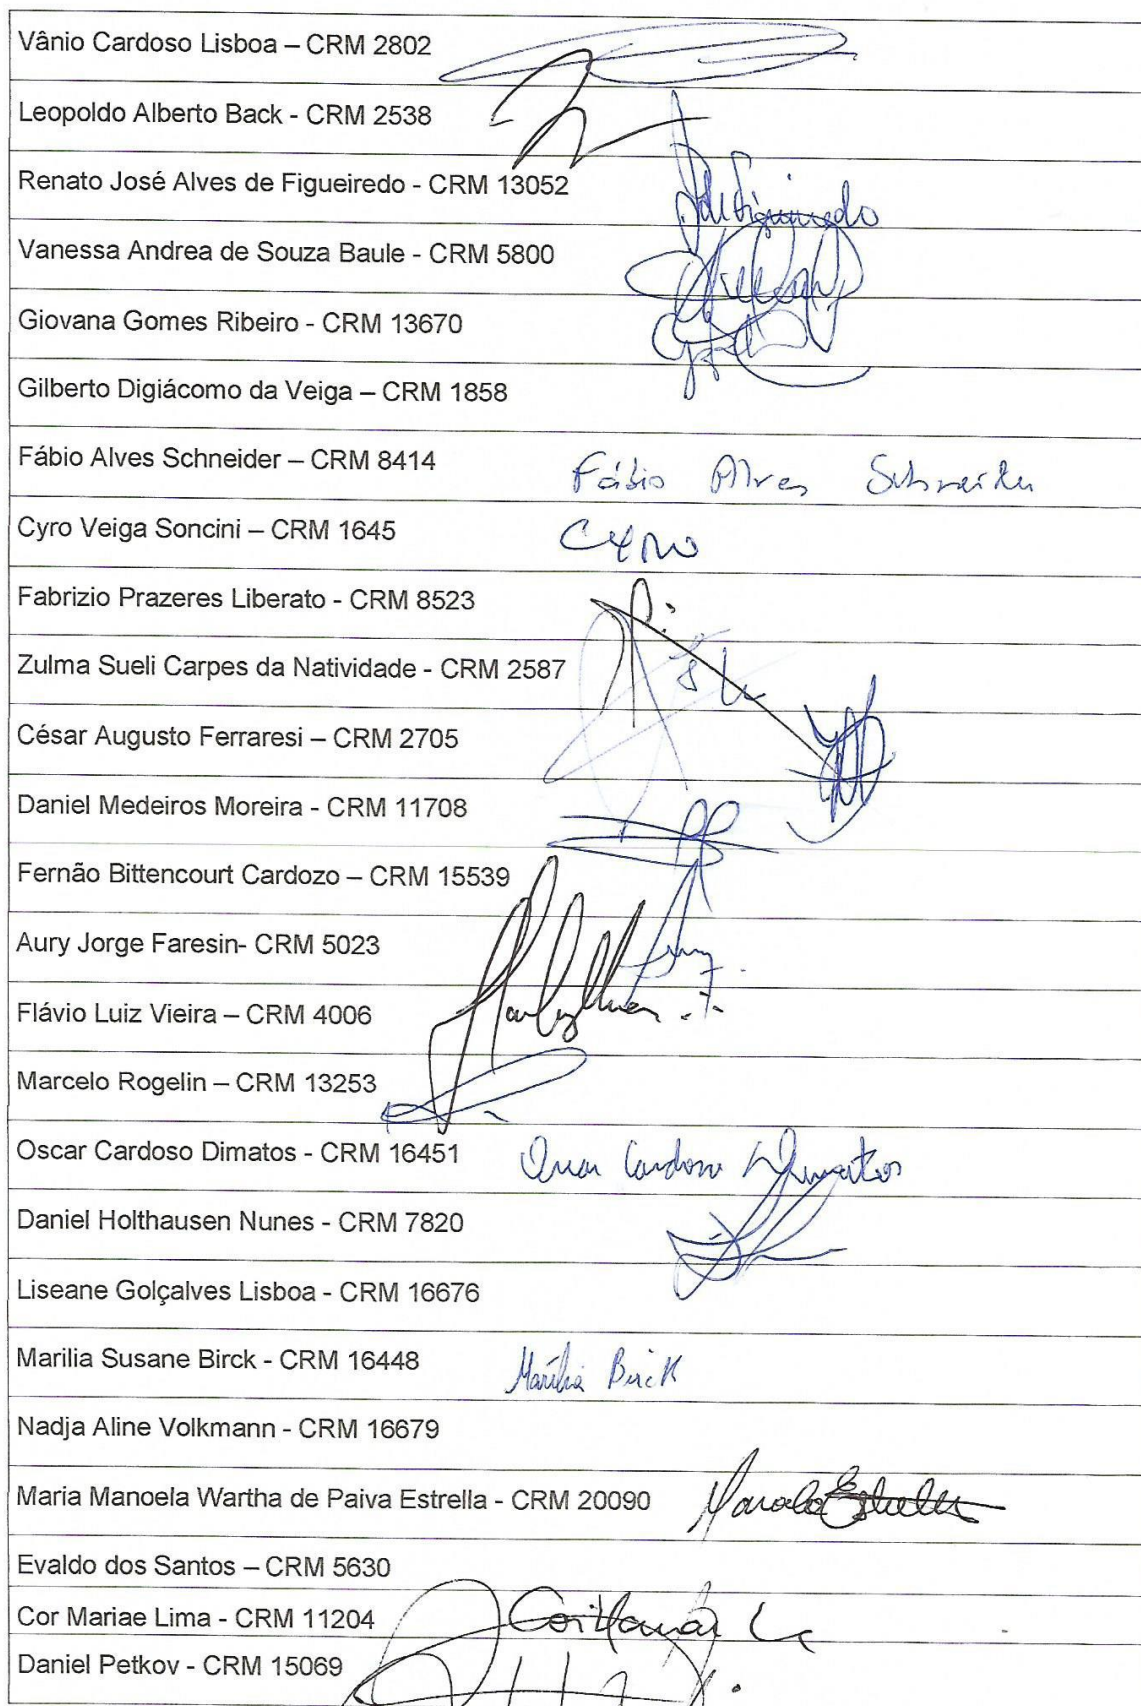 Vânio Cardoso Lisboa – CRM 2802
Leopoldo Alberto Back - CRM 2538
Renato José Alves de Figueiredo - CRM 13052
Vanessa Andrea de Souza Baule - CRM 5800
Giovana Gomes Ribeiro - CRM 13670
Gilberto Digiácomo da Veiga – CRM 1858
Fábio Alves Schneider – CRM 8414 Fábio Alves Schneider
Cyro Veiga Soncini – CRM 1645 Cyro
Fabrizio Prazeres Liberato - CRM 8523
Zulma Sueli Carpes da Natividade - CRM 2587
César Augusto Ferraresi – CRM 2705
Daniel Medeiros Moreira - CRM 11708
Fernão Bittencourt Cardozo – CRM 15539
Aury Jorge Faresin- CRM 5023
Flávio Luiz Vieira – CRM 4006
Marcelo Rogelin – CRM 13253
Oscar Cardoso Dimatos - CRM 16451 Oscar Cardoso Dimatos
Daniel Holthausen Nunes - CRM 7820
Liseane Golçalves Lisboa - CRM 16676
Marilia Susane Birck - CRM 16448 Marilia Birck
Nadja Aline Volkmann - CRM 16679
Maria Manoela Wartha de Paiva Estrella - CRM 20090
Evaldo dos Santos – CRM 5630
Cor Mariae Lima - CRM 11204
Daniel Petkov - CRM 15069